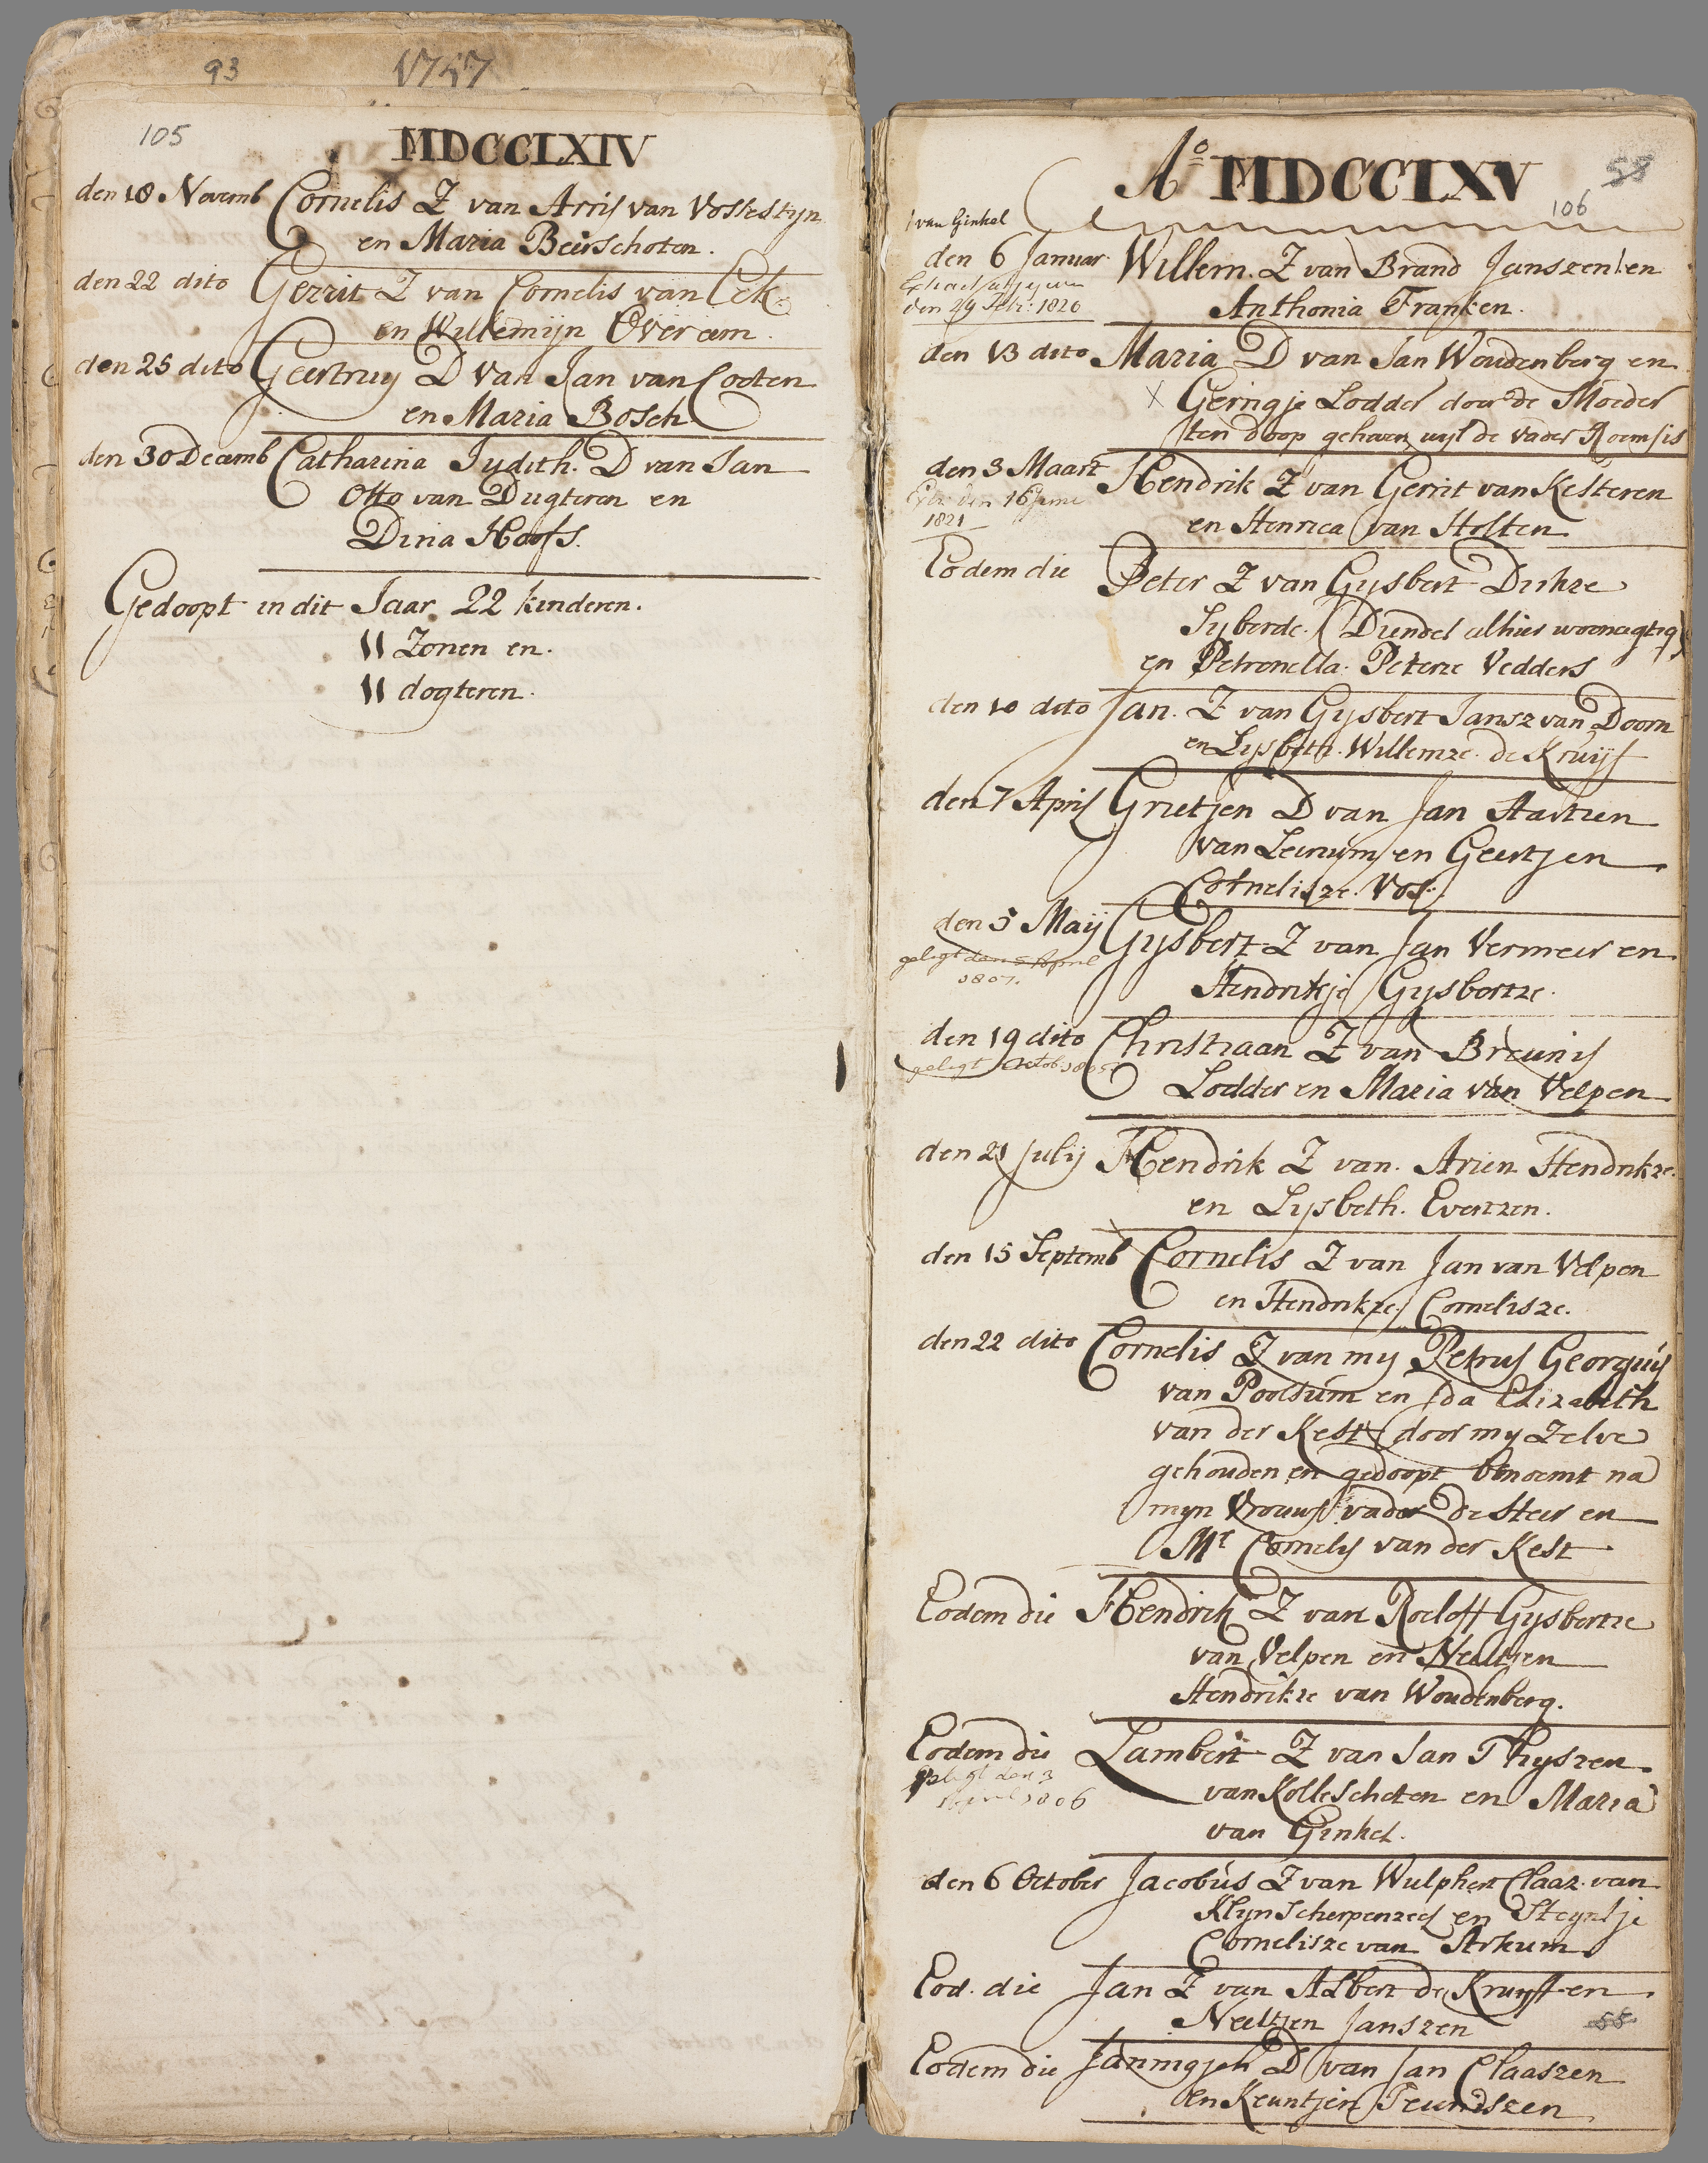 93
1757
105
MDCCLXIV
den 18 Novemb Cornelis Z van Arris van Vossestyn
en Maria Beerschoten.
den 22 dito Gerrit Z van Cornelis van Eck
en Willemijn Overeem.
den 25 dito Geertruy D van Jan van Cooten
en Maria Bosch
den 30 Decemb Catharina Judith. D van Jan
Otto van Dugteren en
Dina Hoofs.
Gedoopt in dit Jaar 22 kinderen.
11 Zonen en.
11 dogteren.
Ao MDCCLXV
58
106
van Ginkel
den 6 Januar Willem. Z van Brand Janszen en
den 24 Feb: 1826
Anthonia Franken.
den 13 dito Maria D van Jan Woudenberg en
x Geringje Lodder door de Moeder
ten doop geheven wyl de vader Roems is
den 3 Maart Hendrik Z van Gerrit van Kesteren
den 16 Junii
1821
en Henrica van Holten
Eodem die Peter Z van Gysbert Dirkze
Syberde. (Diender alhier woonagtig)
en Petronella. Peterze Vedders
den 10 dito Jan. Z van Gysbert Jansz van Doorn
en Lysbeth. Willemze. de Kruijf
den 7 April Grietjen D van Jan
van Leersum en Geertjen
Cornelisze. Vos.
den 5 Maij Gysbert Z van Jan Vermeer en
geligt den 5 April
1807.
Hendrikje Gysbertze.
den 19 dito Christiaan Z van Breunis
geligt Octob 1805
Lodder en Maria van Velpen
den 21 Julij Hendrik Z van. Arien Hendrikze.
en Lysbeth. Evertzen.
den 15 Septemb Cornelis Z van Jan van Velpen
en Hendrikze. Cornelisze.
den 22 dito Cornelis Z van my Petrus Georgius
van Poolsum en Ida Elizabeth
van der Kest (door my Zelve
gehouden en gedoopt benoemt na
myn Vrouws vader De Heer en
Mr Cornelis van der Kest
Eodem die Hendrik Z van Roeloff Gysbertze
van Velpen en Neeltjen
Hendrikze van Woudenberg.
Eodem die Lambert Z van Jan Thyszen
geligt den 3
April 1806
van Kolleschoten en Maria
van Ginkel.
den 6 October Jacobus Z van Wulphert Claaz. van
Klyn Scherpenzeel en Steyntje
Cornelisze van Arkum
Eod. die Jan Z van Albert de Kruyff en
Neeltjen Janszen
58
Eodem die Janningjen D van Jan Claaszen
en Keuntjen Teuniszen